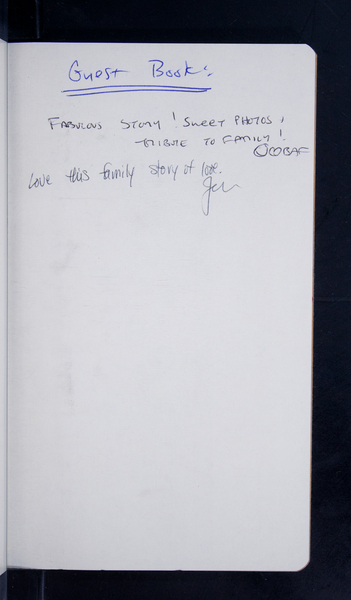 Guest Book:
FABULOUS STORY! SWEET PHOTOS,
TRIBUTE TO FAMILY!
Love this family story of love.
Jen